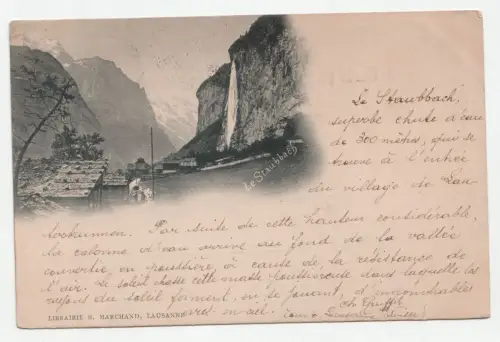 Le Staubbach
Le Staubbach,
superbe chute d'eau
de 300 mètres, qui se
trouve à l'entrée
du village de Lau-
terbrunnen. Par suite de cette hauteur considérable,
la colonne d'eau arrive au fond de la vallée
convertie en poussière à cause de la résistance de
l'air. Le soleil cette masse dans laquelle les
rayons du soleil forment, en se jouant, d'innombrables
arcs-en-ciel.
LIBRAIRIE S. MARCHAND, LAUSANNE